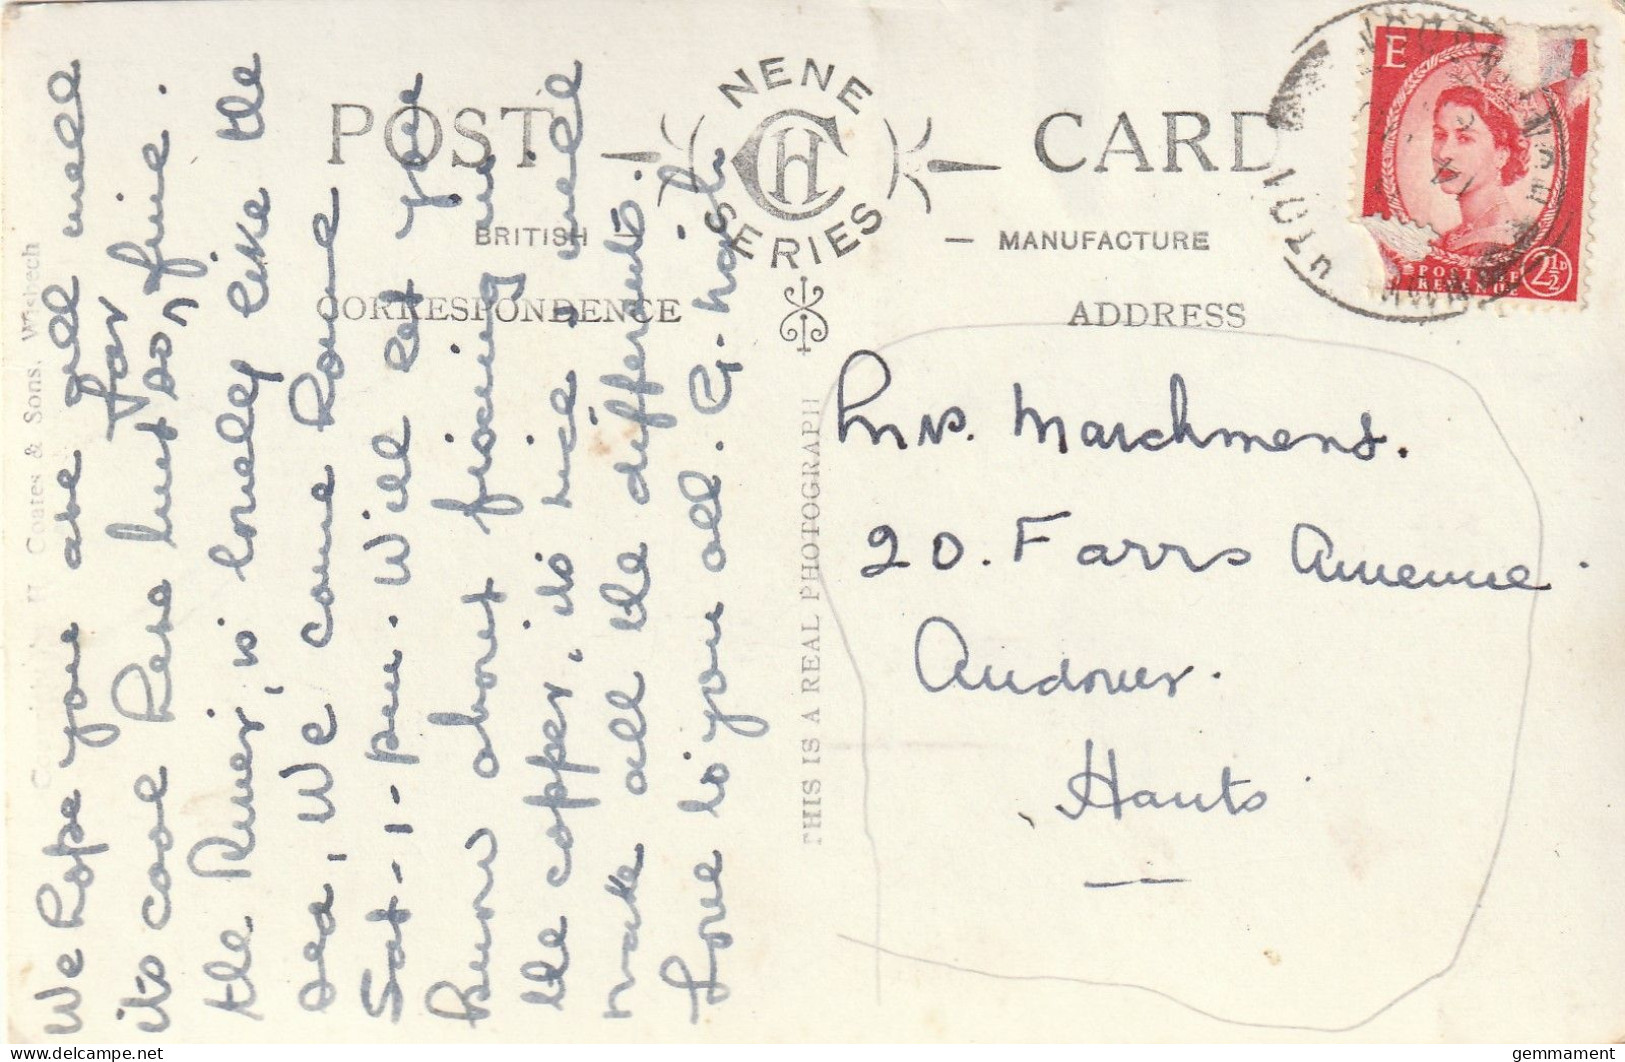 POST CARD
NENE SERIES
CH
BRITISH — MANUFACTURE
CORRESPONDENCE
ADDRESS
We hope you are all well
its cool here but so far fine.
the River, is lovely like the
sea, We come home
Sat-1-pm. Will let you
know about fixing
the copper, its nice, well
make all the different.
Love to you all. G-
THIS IS A REAL PHOTOGRAPH
Coates & Sons, Wisbech
Mrs. Marchment.
20. Farrs Avenue.
Andover.
Hants
E
POSTAGE
REVENUE
2½D
LUTO
gemmament